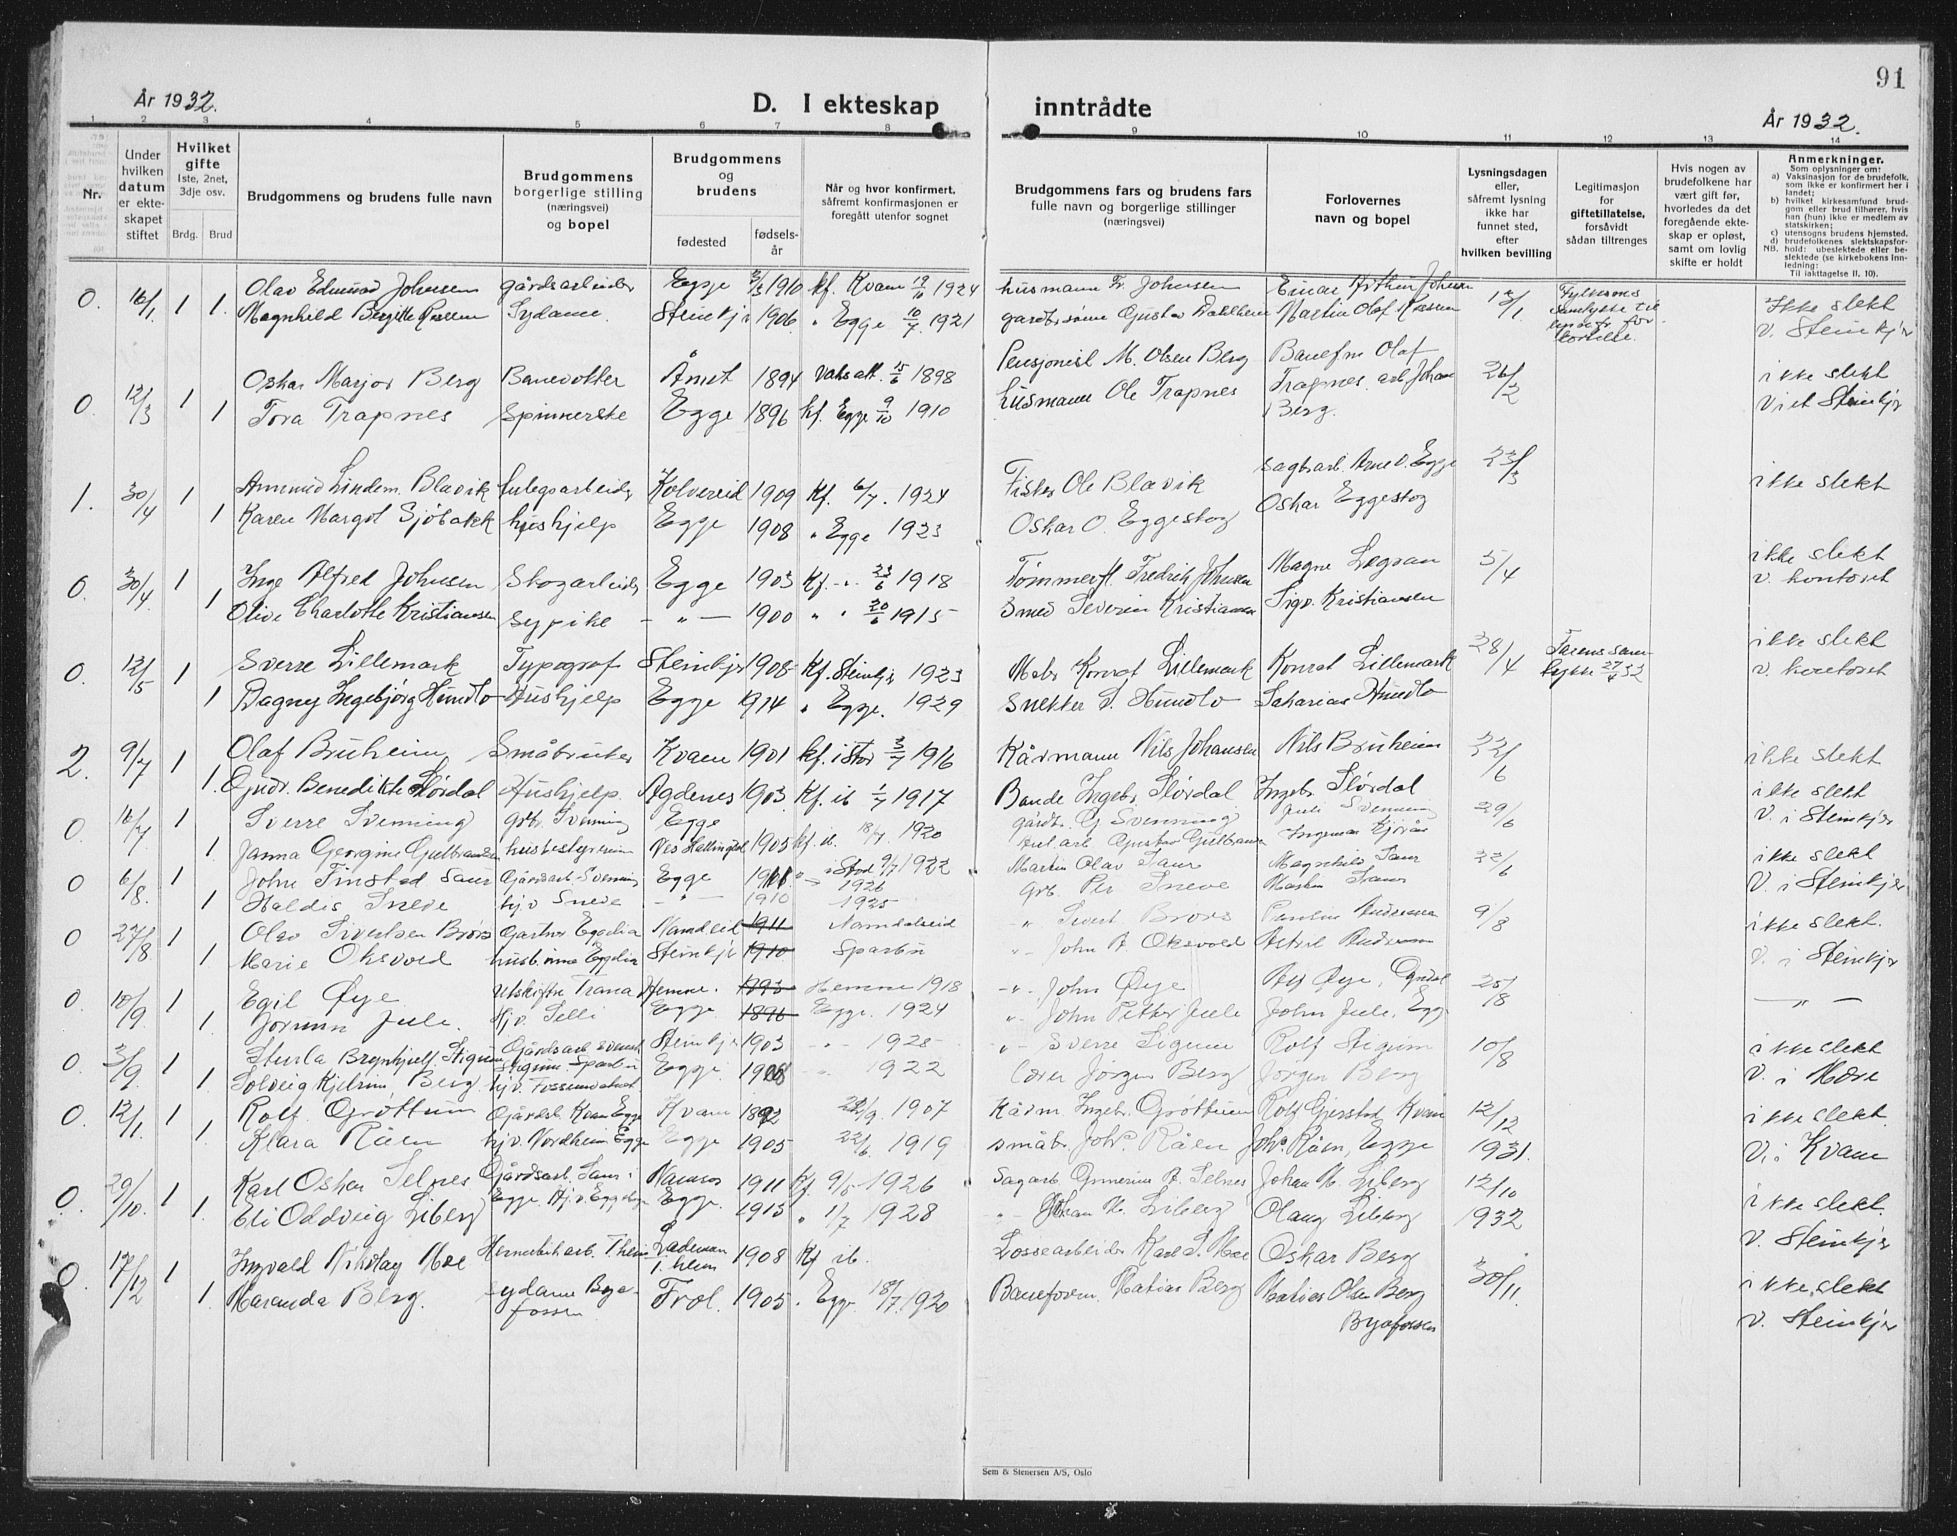 91
År 1932.
D. I ekteskap inntrådte
År 1932.
1 2 3 4 5 6 7 8 9 10 11 12 13 14
Nr.
Under hvilken datum er ekteskapet stiftet
Hvilket gifte
1ste, 2net, 3dje osv.
Brdg. Brud
Brudgommens og brudens fulle navn
Brudgommens og brudens borgerlige stilling (næringsvei) og bopel
Brudgommens og brudens
fødested
fødselsår
Når og hvor konfirmert, såfremt konfirmasjonen er foregått utenfor sognet
Brudgommens fars og brudens fars fulle navn og borgerlige stillinger (næringsvei)
Forlovernes navn og bopel
Lysningsdagen eller, såfremt lysning ikke har funnet sted, efter hvilken bevilling
Legitimasjon for giftetillatelse, forsåvidt sådan tiltrenges
Hvis nogen av brudefolkene har vært gift før, hvorledes da det foregående ekteskap er opløst, samt om lovlig skifte er holdt
Anmerkninger.
Som oplysninger om:
a) Vaksinasjon for de brudefolk, som ikke er konfirmert her i landet;
b) hvilket kirkesamfund brudgom eller brud tilhører, hvis han (hun) ikke er medlem av statskirken;
c) utensogns brudens hjemsted.
d) brudefolkenes slektskapsforhold: ubeslektede eller beslektede (se kirkebokens innledning:
NB.
Til iakttagelse II. 10).
0. 16/1 1 Olav Edmund Johnsen gårdsarbeider Egge 3/3 1910 kf. Kvam 19/10 1924 husmann Fr. Johnsen Einar Arthur Johnsen 13/1 Ikke slekt
1. Magnhild Sydame Steinkjer 1906 " Egge 10/7 1921 Gustav Dahlhem Martin Olaf V. Steinkjer
0. 12/3 1 Oskar Marjor Berg Banevokter Åmot 1894 Vaks att. 15/6 1898 Pensjonist M. Olsen Berg Banefm Olaf 26/2 ikke slekt
1 Tora Trapnes Spinnerske Egge 1896 kf. Egge 9/10 1910 husmann Ole Trapnes Trapnes, arb. Johan Berg. Viet Steinkjer
1. 30/4 1 Blavik Kolvereid 1909 Kf. 6/7. 1924 Fisker Ole Blavik sagarb. Arne O. Egge 23/3 ikke slekt
1 Karen Margot Sjöbakk hushjelp Egge 1908 " Egge 1923 Oskar O. Eggestog Oskar Eggestog
0. 30/4 1 Inge Alfred Johnsen Skogarbeider Egge 1903 Kf. " 23/6 1918 Tømmerfl. Fredrik Johnsen Magne 5/4 ikke slekt
1 Olive Charlotte Kristiansen sypike - " - 1900 " " 20/6 1915 Smed Severin Kristiansen Sigv. Kristiansen v. kontoret
0. 12/5 1 Sverre Lillemark Typograf Steinkjer 1908 Kf. Steinkjer 1923 Konrat Lillemark Konrat Lillemark 28/4 ikke slekt
1 Dagny Ingebjørg Hundlo Hushjelp Egge 1914 " Egge. 1929 Snekker S. Hundlo Sakarias Hundlo v. kontoret
2. 9/7 1 Olaf Bruheim Småbruker Kvam 1901 kf. i Stod 3/7 1916 Kårmann Nils Johansen Nils Bruheim 22/6 ikke slekt
1. Gudr. Benedikte Slørdal Hushjelp Agdenes 1903 Kf. ib 1/7 1917 Bonde Ingebr. Slørdal Ingebr. Slørdal
0 16/7 1 Sverre Svenning Grbr. Svenning Egge gårdbr. G. Svenning Juli Svenning 29/6 ikke slekt
1. Janna Georgine Gulbrandsen husbestyrerinne 1905 kf. ib. 18/7 1920 Gustav Gulbrandsen V. i Steinkjer
0 6/8. 1 John Finstad Saur Gårdsarb. Svenning Egge i Stod 9/7 1922 1926 Martin Olav Saur Magnhild Saur 22/6 ikke slekt
1 Haldis Sneve hj. v. Sneve - " - 1910 1925 Grb. Per Sneve Martin Saur V. i Steinkjer
0 27/8 1 Olav Sivertsen Brørs Gartner Eggelia Namdseid 1911 Namdalseid " Sivert Brørs Andreassen 9/8 ikke slekt.
1 Marie Oksvold Eggelia Steinkjer 1910 Sparbu " John A. Oksvold V. i Steinkjer
0 10/9 1 Egil Øye Trana Hemne. 1893 Hemne 1918 - " - John Øye Alf Øye, 25/8 - " -
1. Jorunn Jule. Hj. v. Selli Egge. 1896 Egge. 1924 " John Petter Jule John Jule, Egge
0 3/9 1 Sturla Brynhjulf Stigum Gårdsarb. Stigum Sparbu Steinkjer 1903 - " - 1928 - " - Sverre Stigum Rolf Stigum 10/8 ikke slekt
1. Solveig Kjelrun Berg hj. v. Egge. 1908 " 1922 Lærer Jørgen Berg Jørgen Berg V. i Mære
0. 12/1 1 Rolf Grøttum Kvam Egge Kvam 1892 22/9. 1907 Kårm. Ingebr. Grøttum Rolf Gjerstad Kvam 12/12 ikke slekt.
1. Klara Råen hj. v. Nordheim Egge Egge 1905 22/6. 1919 småbr. Johs. Råen Johs. Råen, Egge 1931. V. i Kvam
0. 29/10. 1 Karl Oskar Selnes Gårdsarb. Saur i Egge. Namsos 1911 Kf 9/5 1926 Sagarb. A. Selnes Johan M. Liberg 12/10 ikke slekt.
1. Eli Oddveig Liberg Hj. v. Eggebg. Egge. 1913 " 1/7 1928 - " - Johan M. Liberg Olaug Liberg 1932 V. Steinkjer
0. 17/12 1 Ingvald Nikolay Moe Hermetikarb. Theim Lademoen T.heim 1908 Kf ib. Lossearbeider Karl S. Moe Oskar Berg 30/11. ikke slekt
1. Maranda Berg. sydame Byafossen Frol. 1905 . Egge 18/7. 1920 Baneform. Matias Berg Matias Olsen Berg Byafossen V. Steinkjer
Sem & Stenersen A/S, Oslo